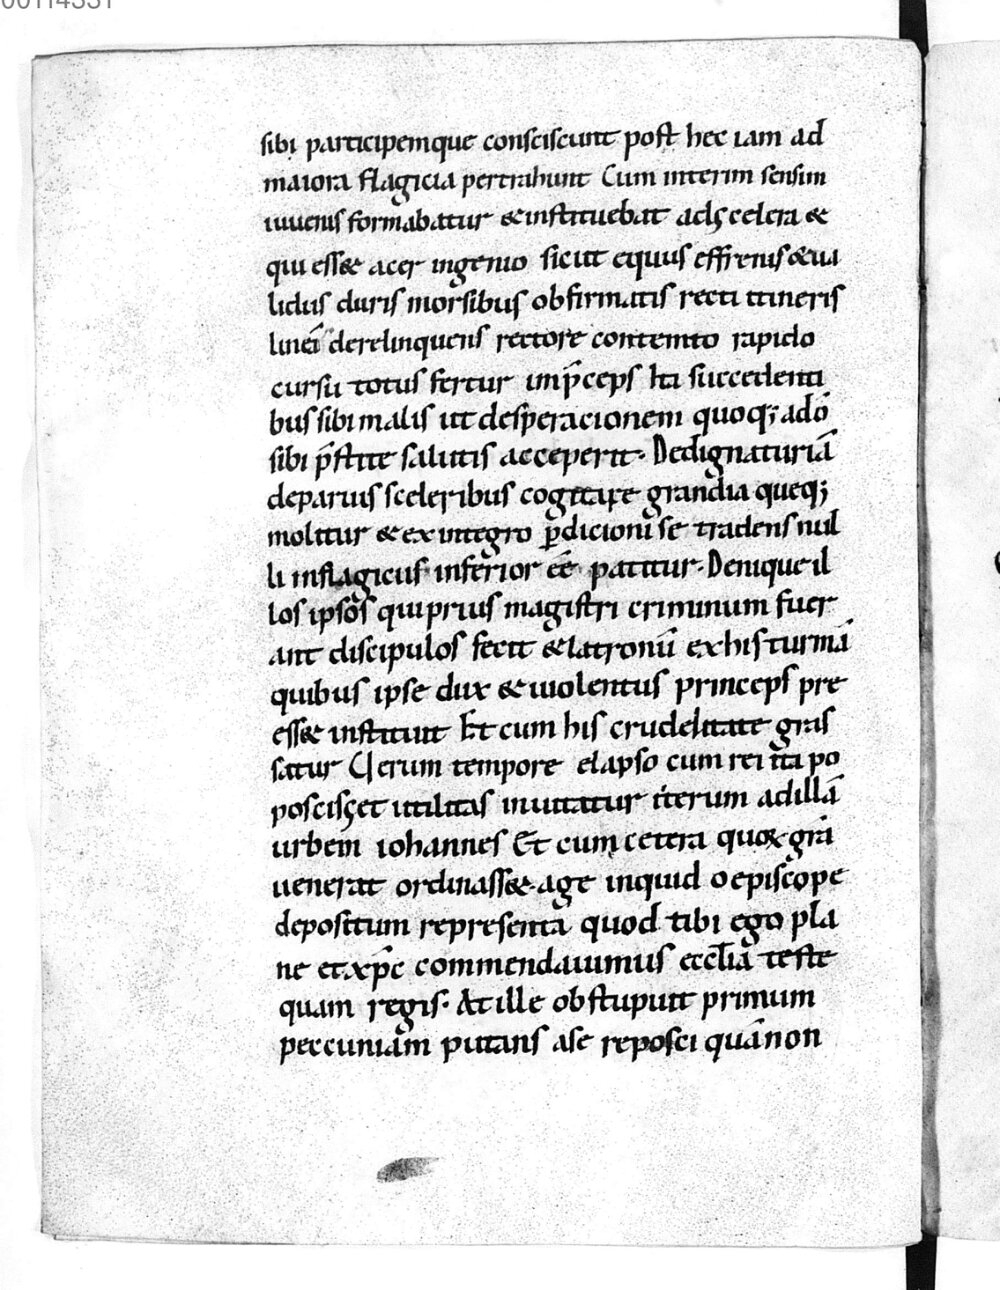 00114331
sibi participemque consciscunt post hec iam ad
maiora flagicia pertrahunt Cum interim sensim
iuuenis formabatur & instituebat ad scelera &
qui ess& acer ingenio sicut equus effrenis & ua
lidus duris morsibus obfirmatis recti itineris
lineā derelinquens rectore contemto rapido
cursu totus fertur imp̄ceps Ita succedenti
bus sibi malis ut desperacionem quoq; a dō
sibi p̄stite salutis acceperit. Dedignatur iā
de paruis sceleribus cogitare grandia queq;
molitur & ex integro p̱dicioni se tradens nul
li in flagiciis inferior eē patitur. Denique il
los ipsos qui prius magistri criminum fuer
ant discipulos fecit & latronū ex his turmā
quibus ipse dux & uiolentus princeps pre
ess& instituit Et cum his crudelitate gras
satur Uerum tempore elapso cum rei ita po
poscisset utilitas inuitatur iterum ad illā
urbem iohannes Et cum cetera quox grā
uenerat ordinass& age inquid o episcope
depositum representa quod tibi ego pla
ne et xp̄c commendauimus ecclīa teste
quam regis. At ille obstupuit primum
peccuniam putans a se reposci quā non